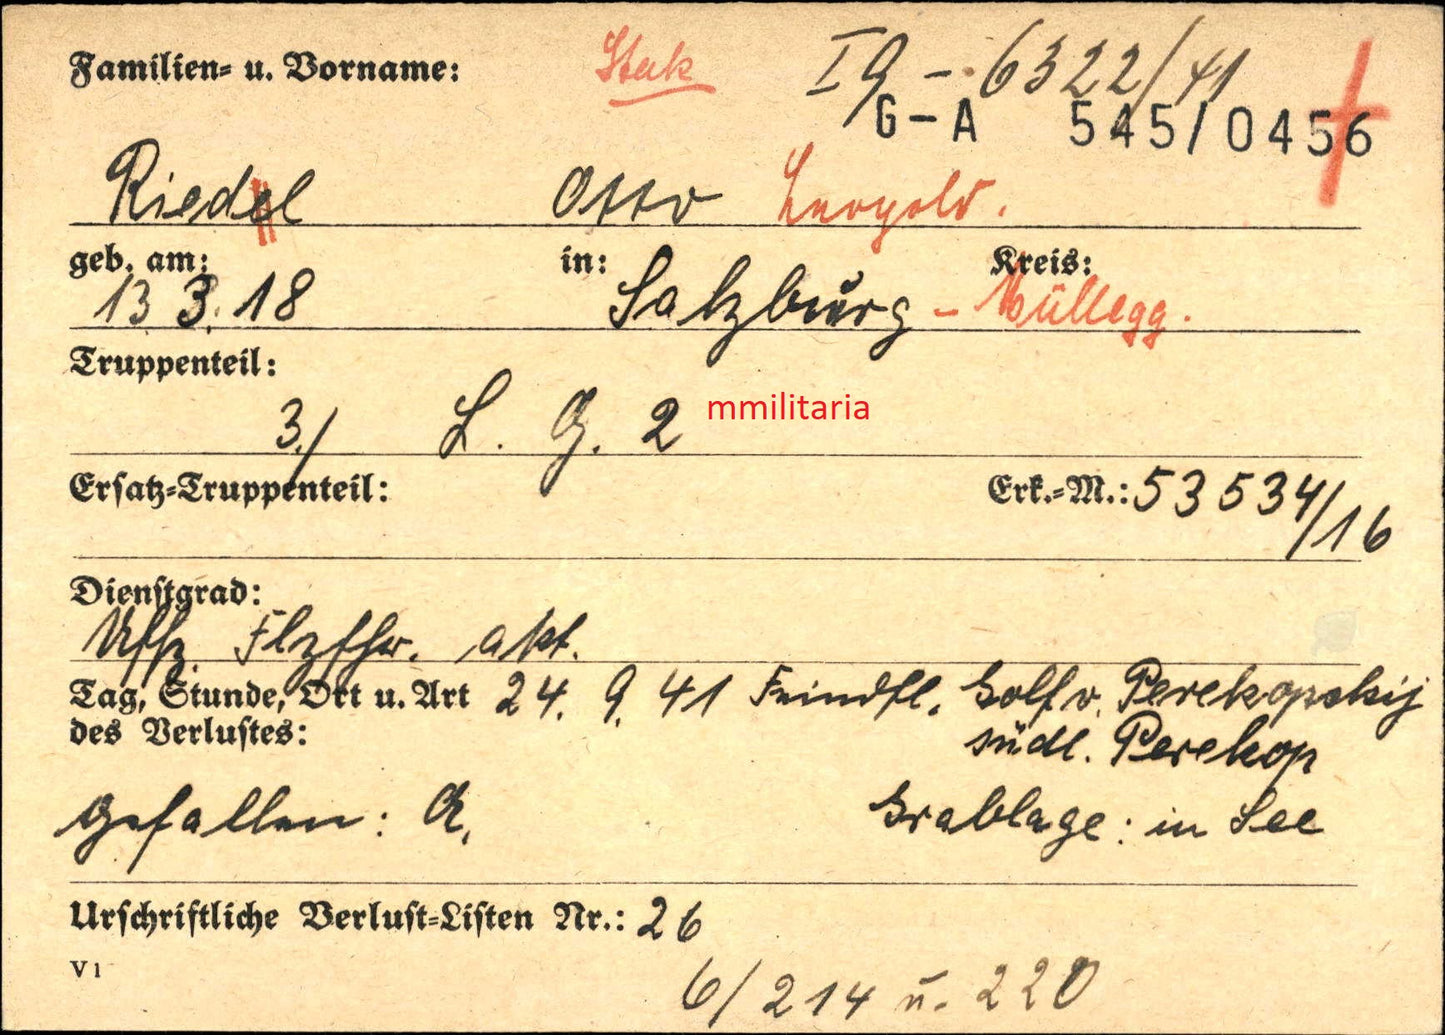 Familien= u. Vorname: Stak I 9 - 6322/41
G-A 545/0456
Riedel Otto Leopold.
geb. am: in: Kreis:
13 3. 18 Salzburg - Müllegg.
Truppenteil:
3./ L. G. 2 mmilitaria
Ersatz=Truppenteil: Erk.=M.: 53534/16
Dienstgrad:
Uffz. Flzfhr. akt.
Tag, Stunde, Ort u. Art 24. 9. 41 Feindfl. Golf v. Perekopskij
des Verlustes: südl. Perekop
gefallen: Grablage: in See
Urschriftliche Verlust=Listen Nr.: 26
V 1
6/214 u. 220